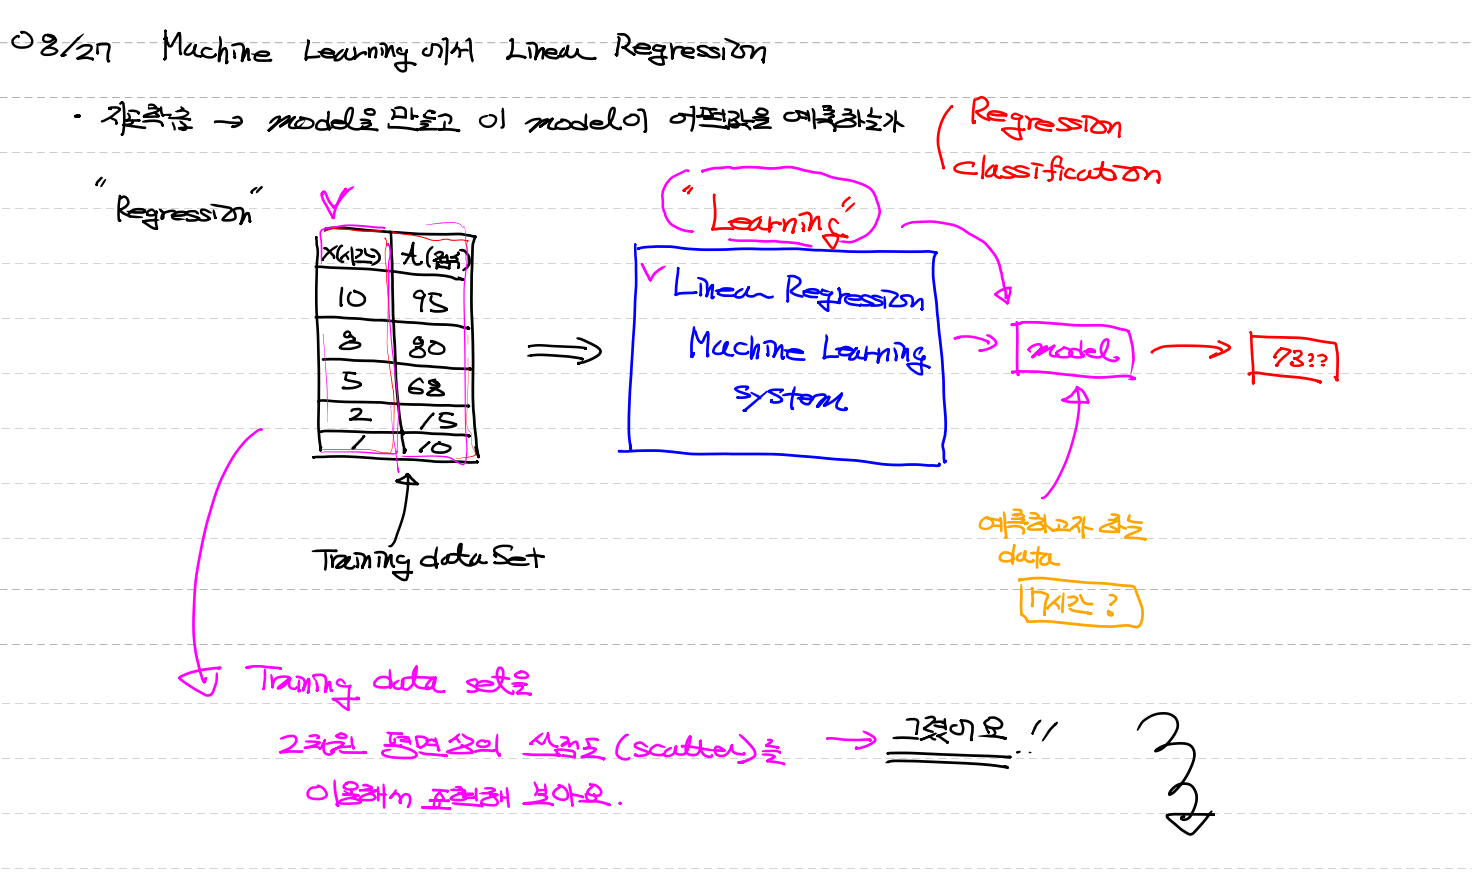 08/27 Machine Learning에서 Linear Regression
· 지도학습 → model을 만들고 이 model이 어떤값을 예측하는가
Regression
Classification
"Regression"
"Learning"
x(시간) t(점수)
10 95
8 80
5 68
2 15
1 10
Training data Set
Linear Regression
Machine Learning
system
model
73??
예측하고자 하는
data
7시간?
Training data set을
2차원 평면상의 산점도(scatter)를 → 그렸어요!!
이용해서 표현해 보아요.